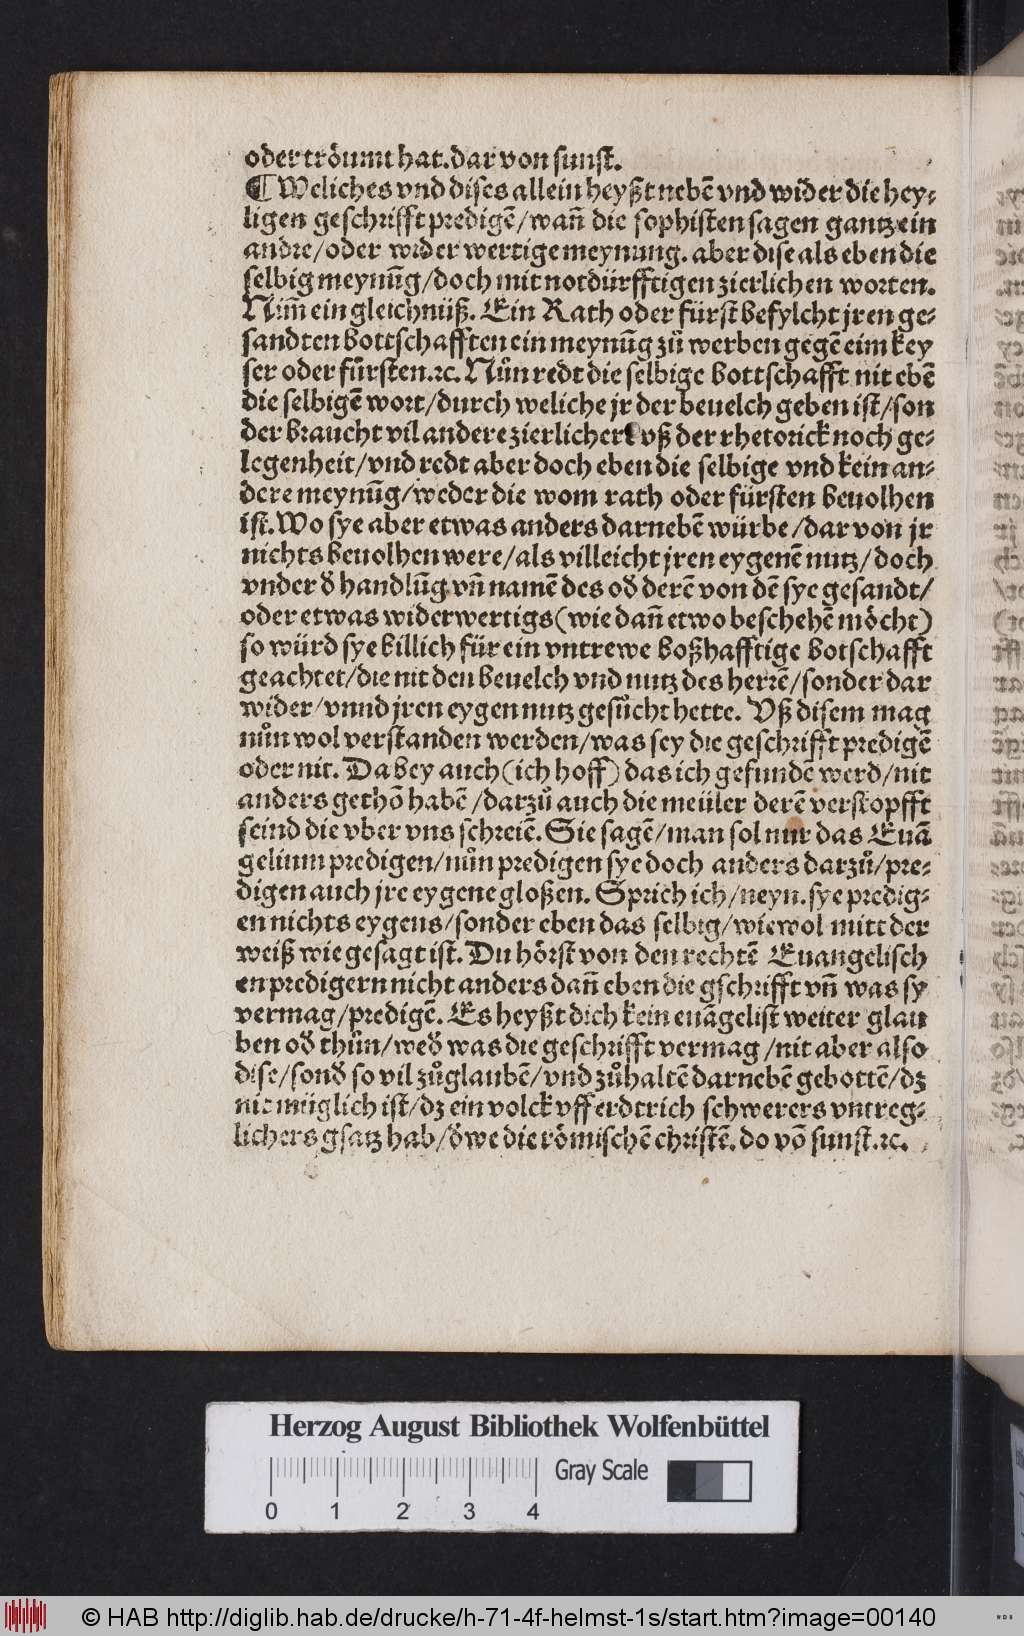 oder tröumt hat. dar von sunst.
¶ Weliches vnd dises allein heyßt nebē vnd wider die hey⸗
ligen geschrifft predigē/wañ die sophisten sagen gantz ein
andre/oder wider wertige meynung. aber dise als eben die
selbig meynūg/doch mit notdürfftigen zierlichen worten.
Nim̄ ein gleichnüß. Ein Rath oder fürst befylcht jren ge⸗
sandten bottschafften ein meynūg zů werben gegē eim key
ser oder fürsten.ꝛc. Nůn redt die selbige bottschafft nit ebē
die selbigē wort/durch weliche jr der beuelch geben ist/son
der braucht vil andere zierlichere vß der rhetorick noch ge⸗
legenheit/vnd redt aber doch eben die selbige vnd kein an⸗
dere meynūg/weder die wom rath oder fürsten beuolhen
ist. Wo sye aber etwas anders darnebē würbe/dar von jr
nichts beuolhen were/als villeicht jren eygenē nutz/doch
vnder d̄ handlūg vñ namē des od̄ derē von dē sye gesandt/
oder etwas widerwertigs (wie dañ etwo beschehē möcht)
so würd sye billich für ein vntrewe boßhafftige botschafft
geachtet/die nit den beuelch vnd nutz des herrē/sonder dar
wider/vnnd jren eygen nutz gesůcht hette. Vß disem mag
nůn wol verstanden werden/was sey die geschrifft predigē
oder nit. Da bey auch (ich hoff) das ich gefundē werd/nit
anders gethō habē/darzů auch die meüler derē verstopfft
seind die vber vns schreiē. Sie sagē/man sol nur das Euā
gelium predigen/nůn predigen sye doch anders darzů/pre⸗
digen auch jre eygene gloßen. Sprich ich/neyn. sye predig⸗
en nichts eygens/sonder eben das selbig/wiewol mitt der
weiß wie gesagt ist. Du hörst von den rechtē Euangelisch
en predigern nicht anders dañ eben die gschrifft vñ was sy
vermag/predigē. Es heyßt dich kein euāgelist weiter glau
ben od̄ thůn/wed̄ was die geschrifft vermag/nit aber also
dise/sond̄ so vil zůglaubē/vnd zůhaltē darnebē gebottē/dz
nit müglich ist/dz ein volck vff erdtrich schwerers vntreg⸗
lichers gsatz hab/öwe die römischē christē. do vō sunst.ꝛc.
Herzog August Bibliothek Wolfenbüttel
Gray Scale
0 1 2 3 4
© HAB http://diglib.hab.de/drucke/h-71-4f-helmst-1s/start.htm?image=00140